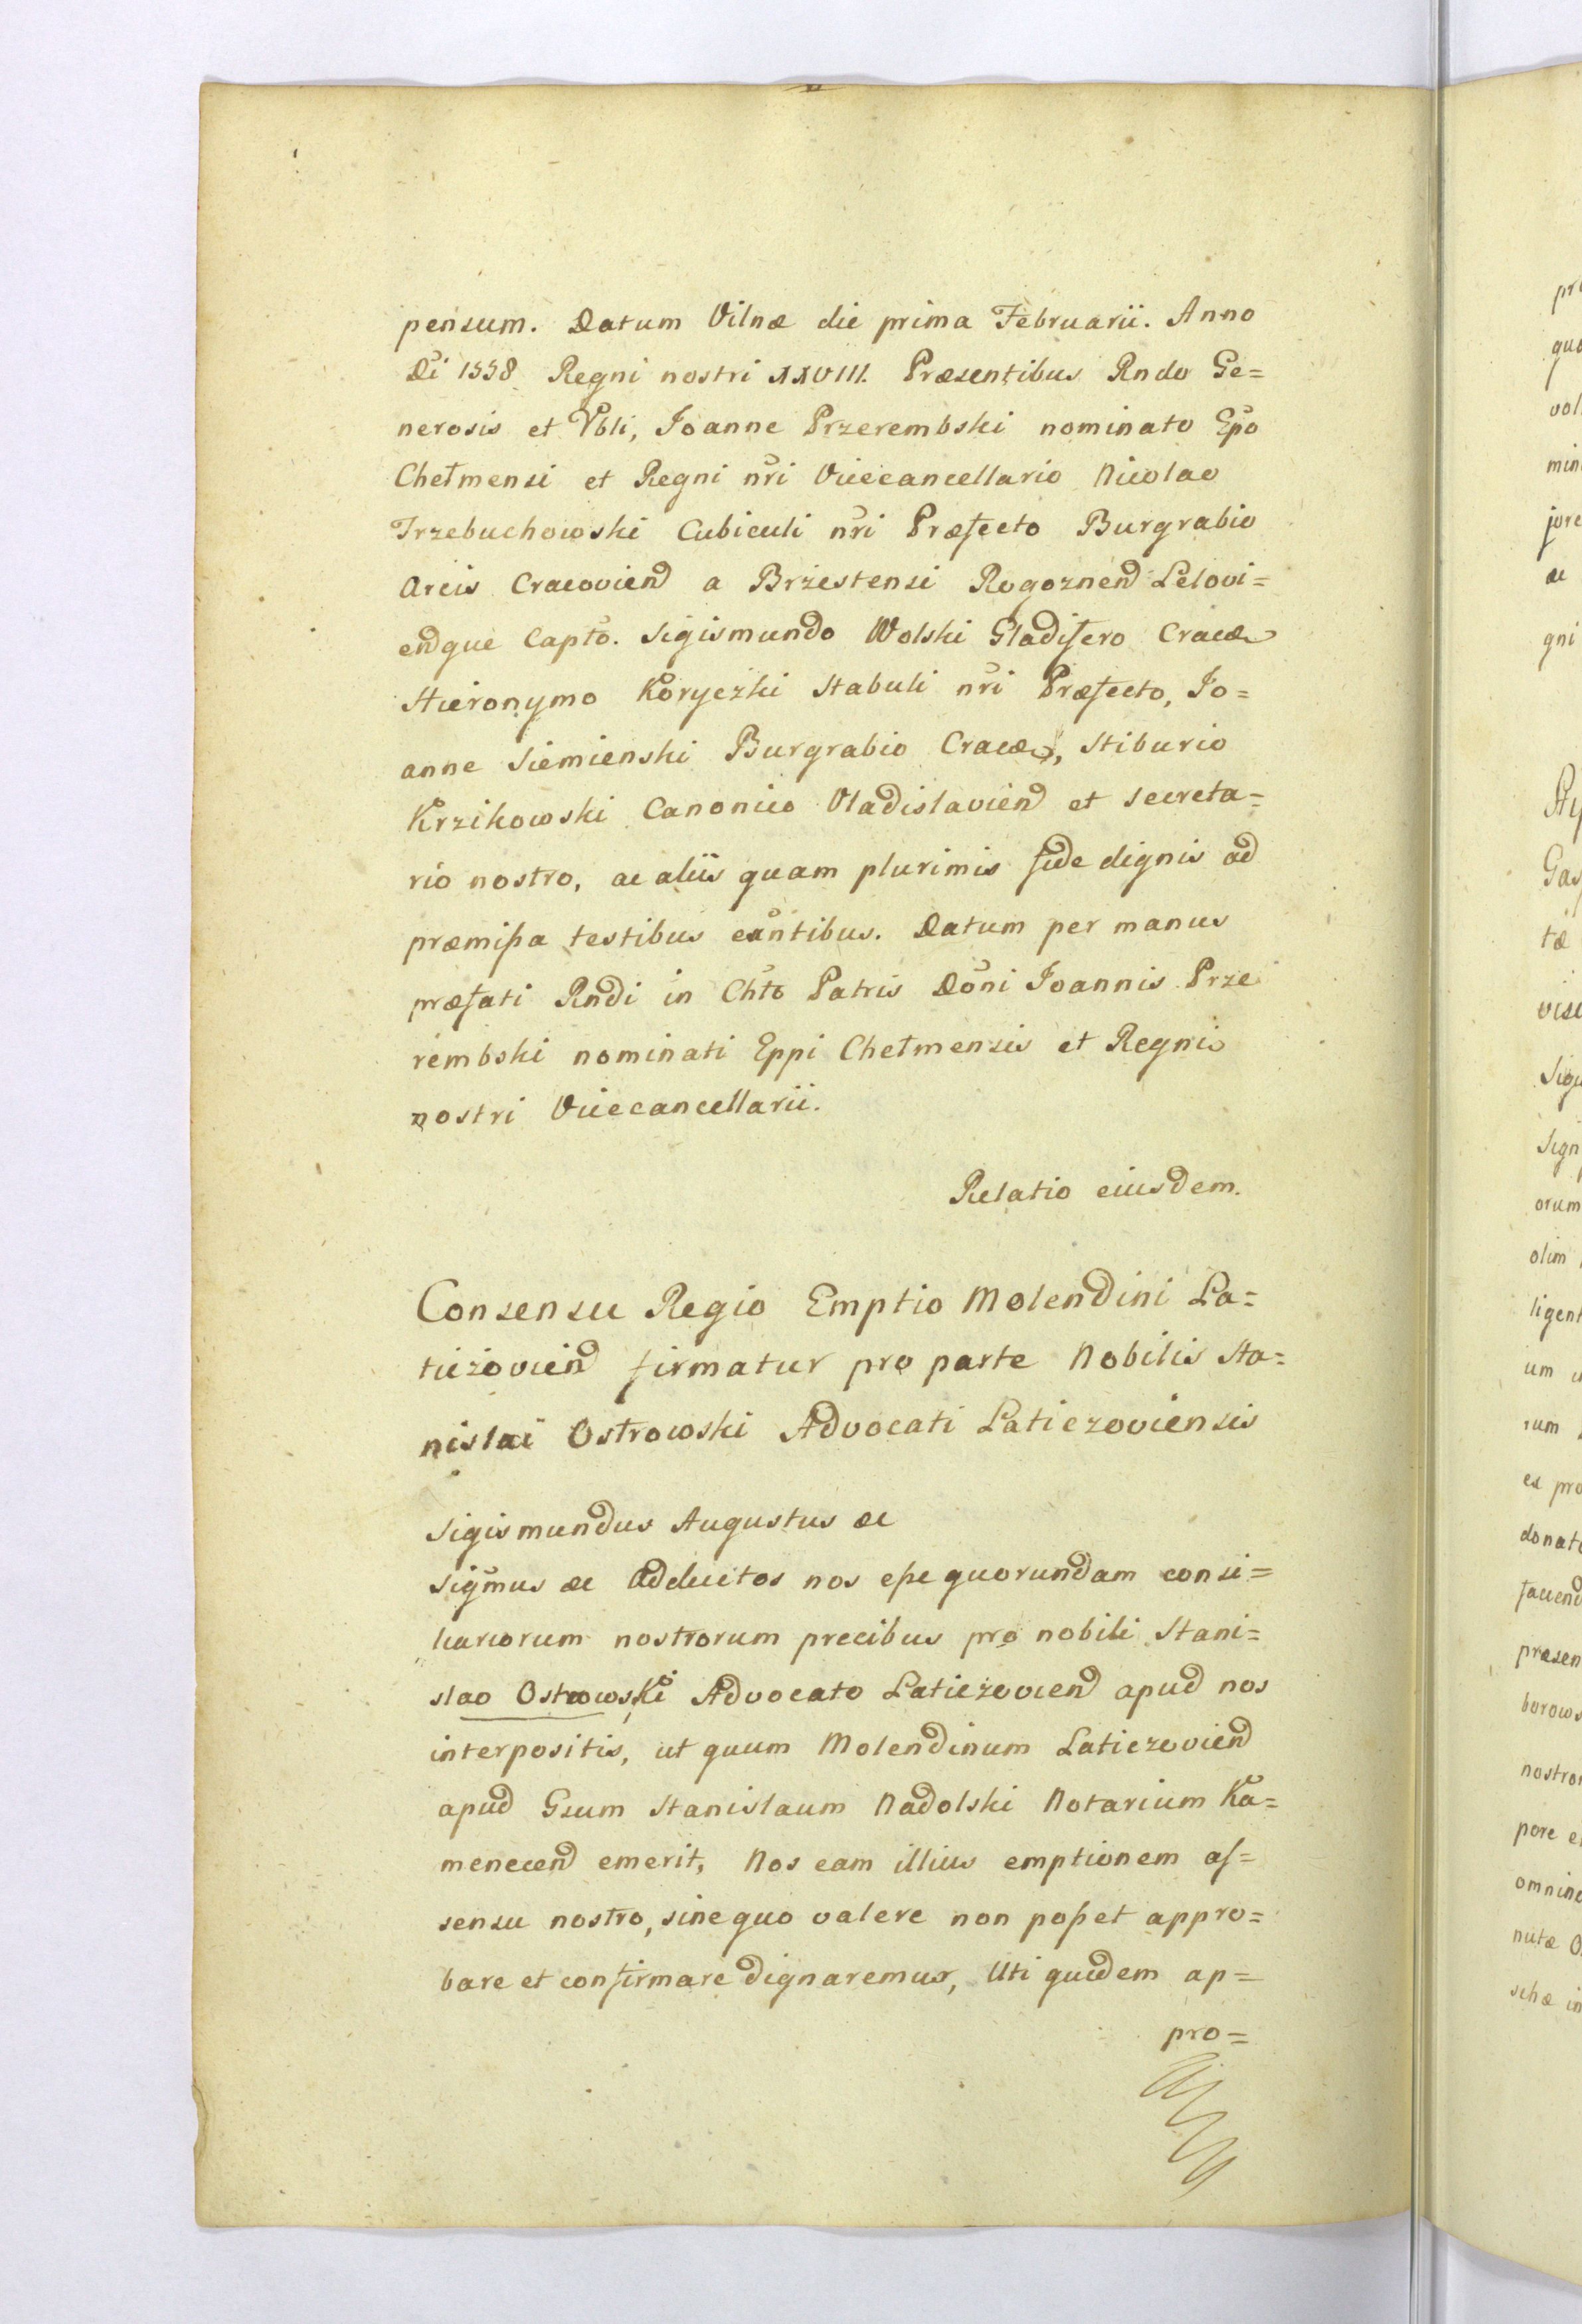 pensum. Datum Vilnæ die prima Februarii. Anno
Di 1558 Regni nostri XXVIII. Præsentibus Rndo Ge=
nerosis et Vbli, Joanne Przerembski nominato Epo
Chełmensi et Regni nri Vicecancellario Nicolao
Trzebuchowski Cubiculi nri Præfecto Burgrabio
Arcis Cracovien a Brzestensi Rogoznen Lelovi=
enque Capto. Sigismundo Wolski Gladifero Cracæ
Hieronymo Koryczki Stabuli nri Præfecto, Jo=
anne Siemienski Burgrabio Cracæ, Stiburio
Krzikowski Canonico Vladislavien et Secreta=
rio nostro, ac aliis quam plurimis fide dignis ad
præmißa testibus eantibus. Datum per manus
præfati Rndi in Chto Patris Doni Joannis Prze
rembski nominati Eppi Chełmensis et Regni
nostri Vicecancellarii.
Relatio eiusdem.
Consensu Regio Emptio Molendini La=
ticzovien firmatur pro parte Nobilis Sta=
nislai Ostrowski Advocati Laticzoviensis
Sigismundus Augustus &c
Sigmus &c Adductos nos eße quorundam consi=
liariorum nostrorum precibus pro nobili Stani=
slao Ostrowski Advocato Laticzovien apud nos
interpositis, ut quum Molendinum Laticzovien
apud Gsum Stanislaum Nadolski Notarium Ka=
menecen emerit, Nos eam illius emptionem as=
sensu nostro, sine quo valere non poßet appro=
bare et confirmare dignaremur, Uti quidem ap=
pro=